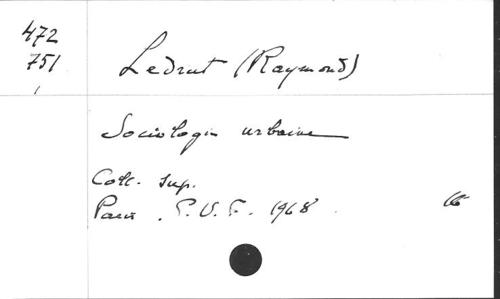 472
751
Ledrut (Raymond)
Sociologie urbaine
Coll. sup.
Paris . P. U. F. 1968